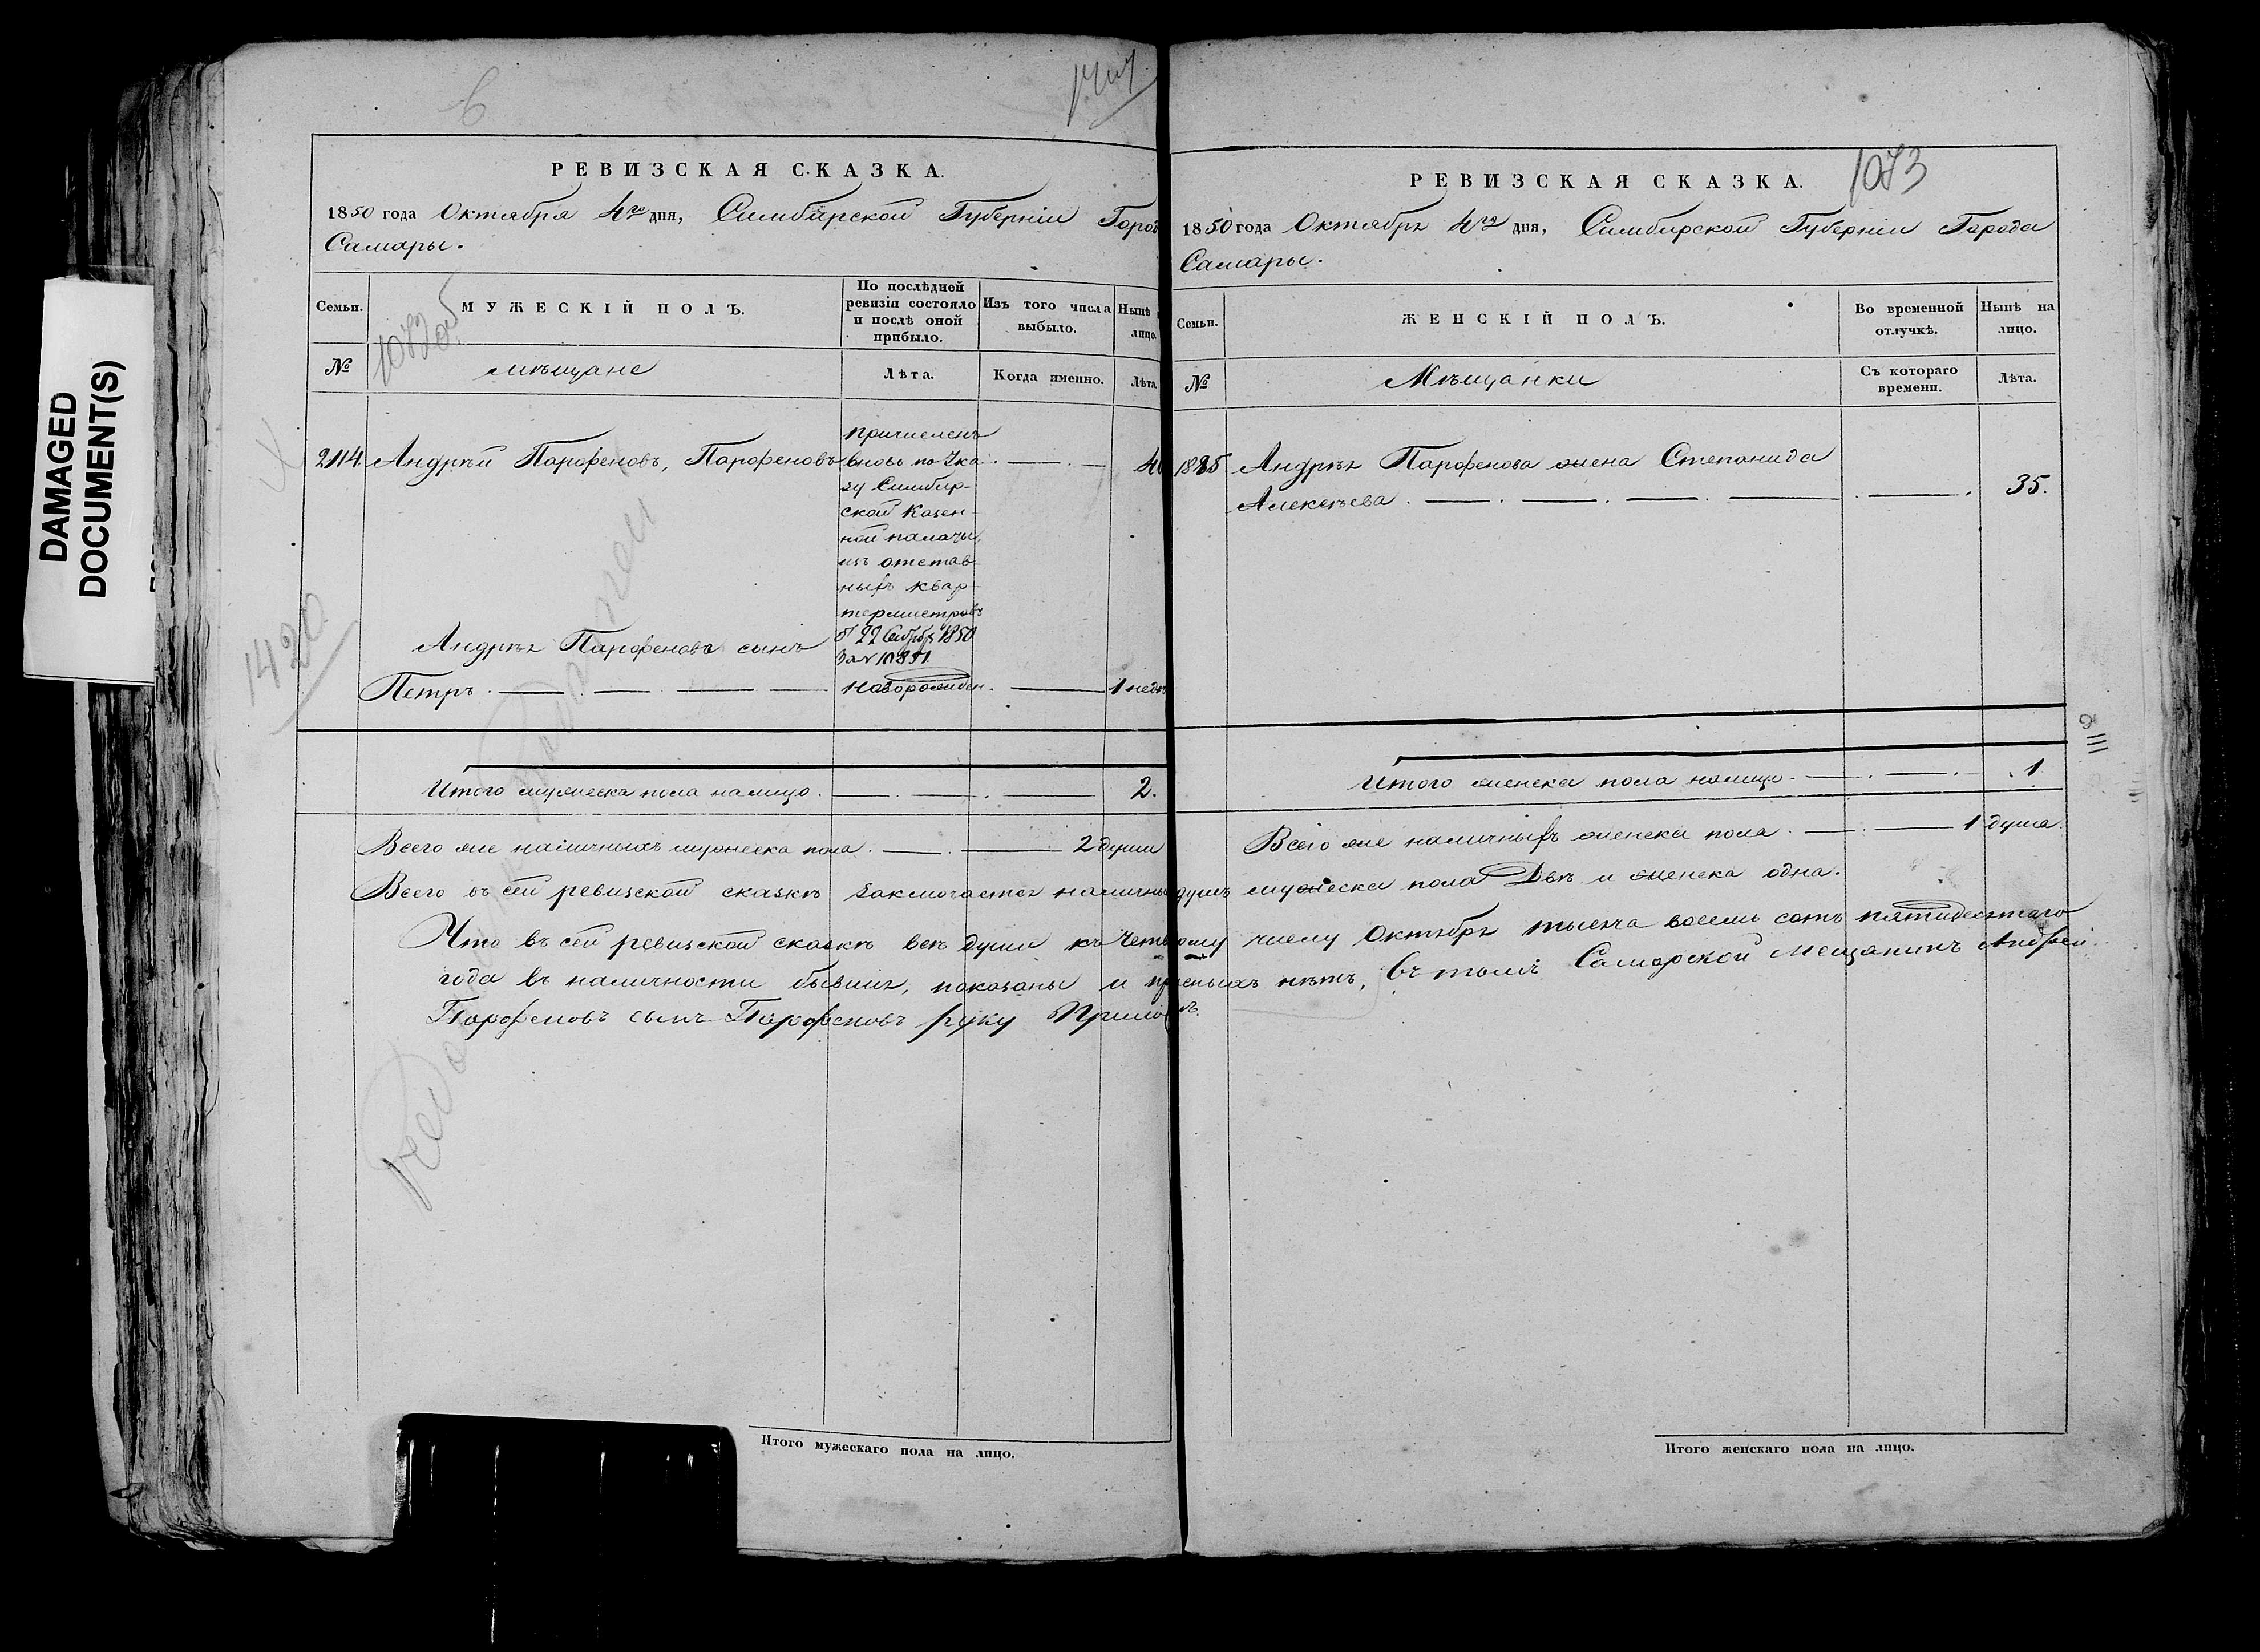 DAMAGED
DOCUMENT(S)
РЕВИЗСКАЯ СКАЗКА.
1850 года Октября 4го дня, Симбирской Губерніи Горо
Самары.
Семьи.
МУЖЕСКІЙ ПОЛЪ.
По послѣдней
ревизіи состояло
и послѣ оной
прибыло.
Изъ того числа
выбыло.
Нынѣ
лицо.
№
мѣщане
Лѣта.
Когда именно.
Лѣта.
2114 Андрѣй Парфеновъ, Парфеновъ
причисленъ
вновь по Ука
зу Симбир-
ской Казен-
ной палаты,
изъ отстав-
ныхъ квар-
термистровъ
от 22 Сентября 1850
за № 10851
40
Андрѣя Парфенова сынъ
Петръ
Новорожден.
1 недѣ
Итого мужеска пола налицо. 2.
Всего же наличныхъ мужеска пола. 2 души
1420
РЕВИЗСКАЯ СКАЗКА.
1073
1850 года Октября 4го дня, Симбирской Губерніи Города
Самары.
Семьи.
ЖЕНСКІЙ ПОЛЪ.
Во временной
отлучкѣ.
Нынѣ на
лицо.
№
Мѣщанки
Съ котораго
времени.
Лѣта.
1885 Андрѣя Парфенова жена Степанида
Алексѣева. 35.
Итого женска пола налицо. 1.
Всего же наличныхъ женска пола. 1 душа.
Всего въ сей ревизской сказкѣ заключается наличныхъ душъ мужеска пола Двѣ и женска одна.
Что въ сей ревизской сказкѣ всѣ души къ Четвертому числу Октября тысяча восемь сотъ пятидесятаго
года въ наличности бывшія, показаны и прописныхъ нѣтъ, въ томъ Самарской Мещанинъ Андрей
Парфеновъ сынъ Парфеновъ руку Приложилъ.
Итого мужескаго пола на лицо.
Итого женскаго пола на лицо.